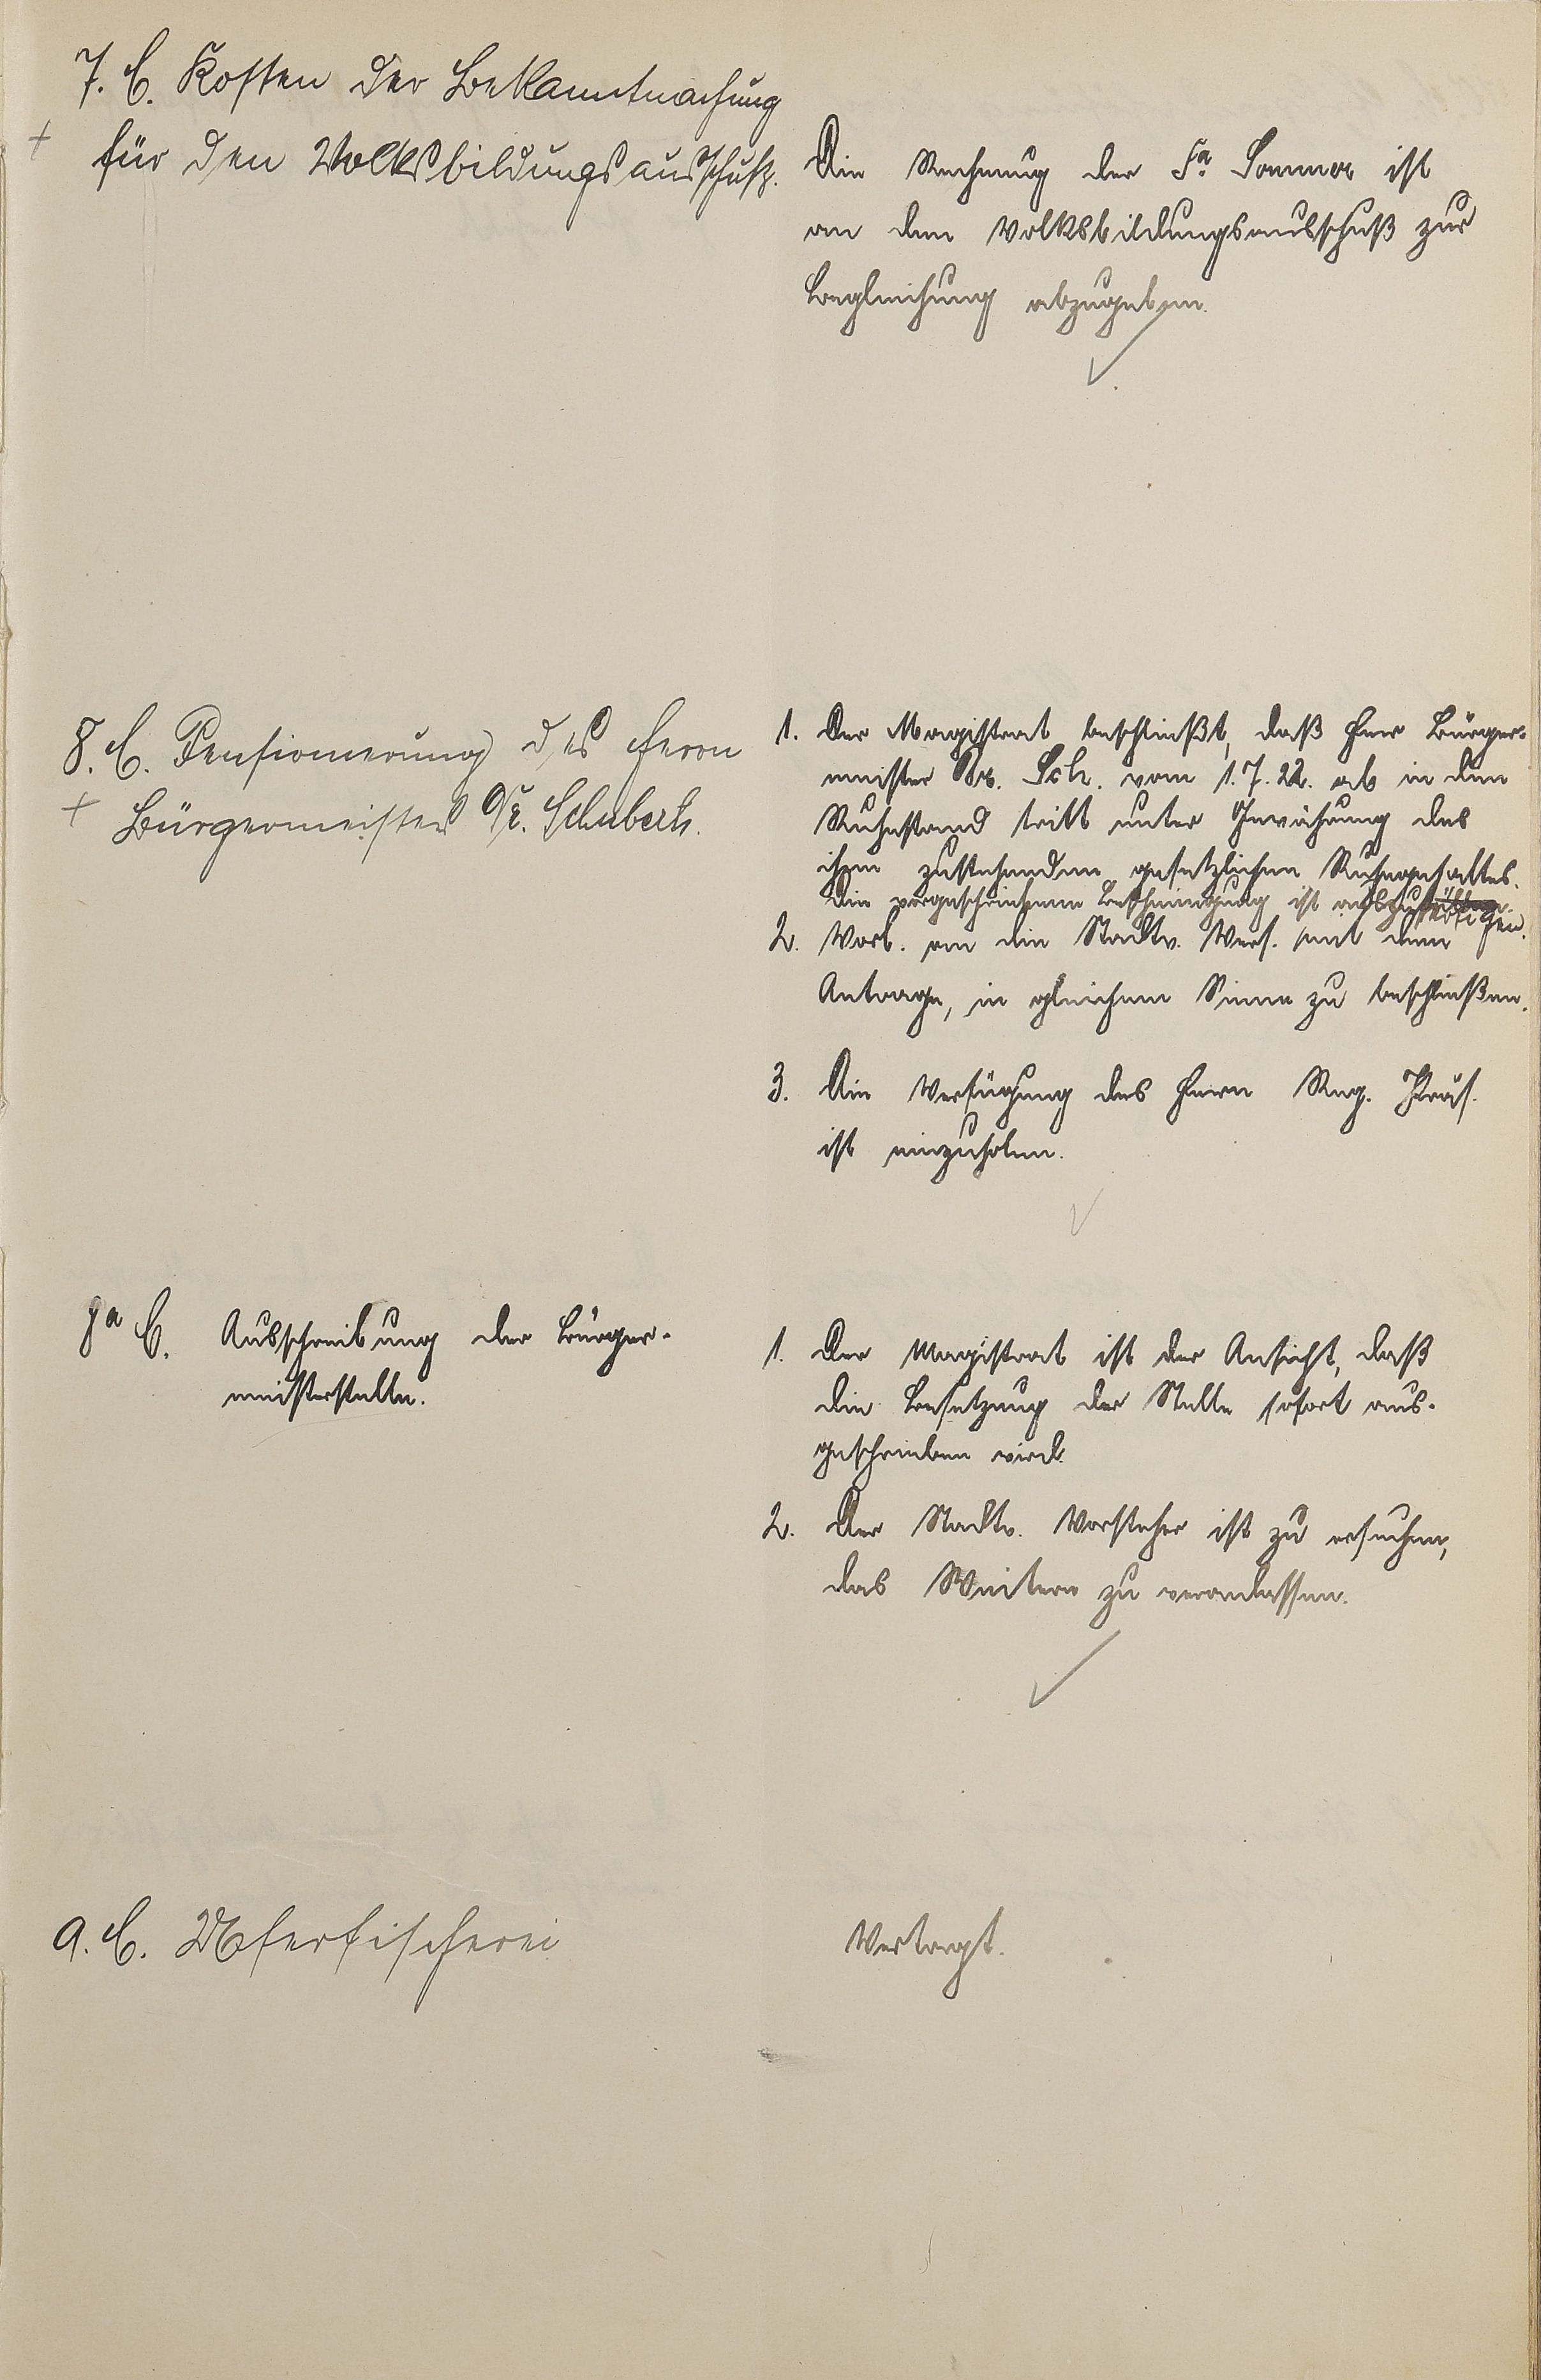 7. C. Kosten der Bekanntmachung
+ für den Volksbildungsausschuß.
Die Rechnung der Fa. Sommer ist
an den Volksbildungsausschuß zur
Begleichung abzugeben.
8. C. Pensionierung des Herrn
+ Bürgermeisters Dr. Schubert.
1. Der Magistrat beschließt, daß Herr Bürger-
meister Dr. Sch. vom 1.7.22. ab in den
Ruhestand tritt unter Gewährung des
ihm zustehenden gesetzlichen Ruhegehaltes.
Die vorgeschriebene Bescheinigung ist auszufertigen.
2. Vorl. an die Stadtv. Vers. mit dem
Antrage, in gleichem Sinne zu beschließen.
3. Die Verfügung des Herrn Reg. Präs.
ist einzuholen.
8a C. Ausschreibung der Bürger-
meisterstelle.
1. Der Magistrat ist der Ansicht, daß
die Besetzung der Stelle sofort aus-
geschrieben wird.
2. Der Stadtv. Vorsteher ist zu ersuchen,
das Weitere zu veranlassen.
9. C. Uferfischerei
Vertagt.